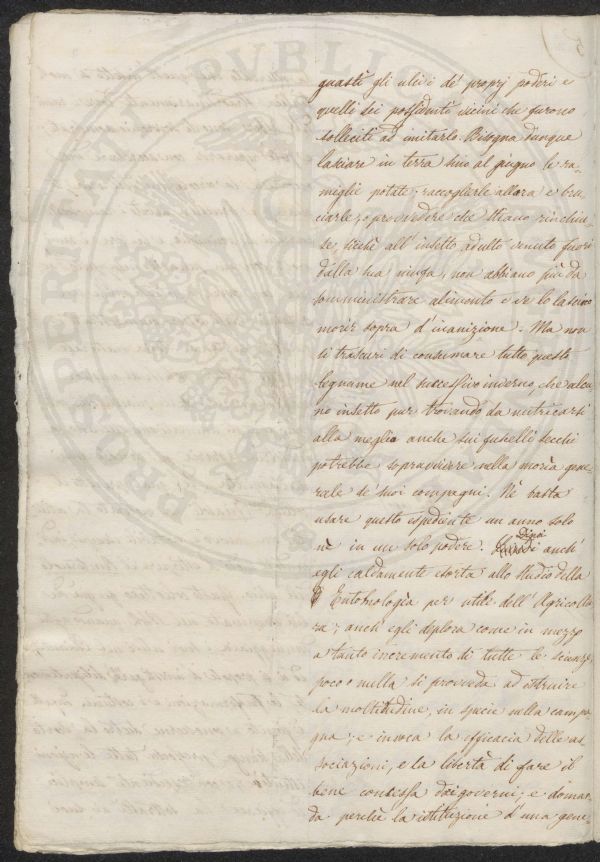 guasti gli ulivi de' proprj poderi e
quelli dei possidenti vicini che furono
solleciti ad imitarlo. Bisogna dunque
lasciare in terra sino al giugno le ra-
meglie potate; raccoglierle allora e bru-
ciarle, o provvedere che stiano rinchiu-
se, sichè all'insetto adulto venuto fuori
dalla sua ninfa, non abbiano più da
somministrare alimento e ve lo lascino
morir sopra d'inanizione. Ma non
si trascuri di consumare tutto questo
legname nel successivo inverno, che alcu-
no insetto pur trovando da nutricarsi
alla meglio anche sui fuscelli secchi
potrebbe sopravvivere nella morìa gene-
rale de' suoi compagni. Nè basta
usare questo espediente un anno solo
nè in un solo podere. Dinoi anch'
egli caldamente esorta allo studio della
Entomologìa per utile dell'Agricoltu-
ra; anch'egli deplora come in mezzo
a tanto incremento di tutte le scienze
poco o nulla si provveda ad istruire
la moltitudine, in specie sulla campa-
gna; e invoca la efficacia delle as-
sociazioni, e la libertà di fare il
bene concessa dai governi; e doman-
da perchè la istituzione d'una gene-
PVBLIC
PROSPERITATI